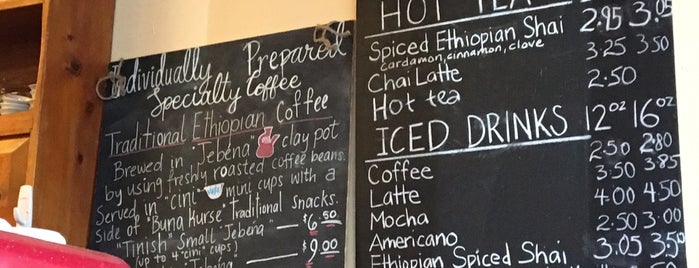 Individually Prepared
Specialty Coffee
Traditional Ethiopian Coffee
Brewed in "Jebena" clay pot
by using freshly roasted coffee beans.
Served in "cini" mini cups with a
side of "Buna Kurse" Traditional Snacks.
"Tinish" Small "Jebena" $6.50
(up to 4 "cini" cups) $9.00
"Jebena"
HOT TEA
Spiced Ethiopian Shai 2.95 3.05
cardamon, cinnamon, clove
Chai Latte 3.25 3.50
Hot tea 2.50
ICED DRINKS 12oz 16oz
Coffee 2.50 2.80
Latte 3.50 3.85
Mocha 4.00 4.50
Americano 2.50 3.00
Ethiopian Spiced Shai 3.05 3.50